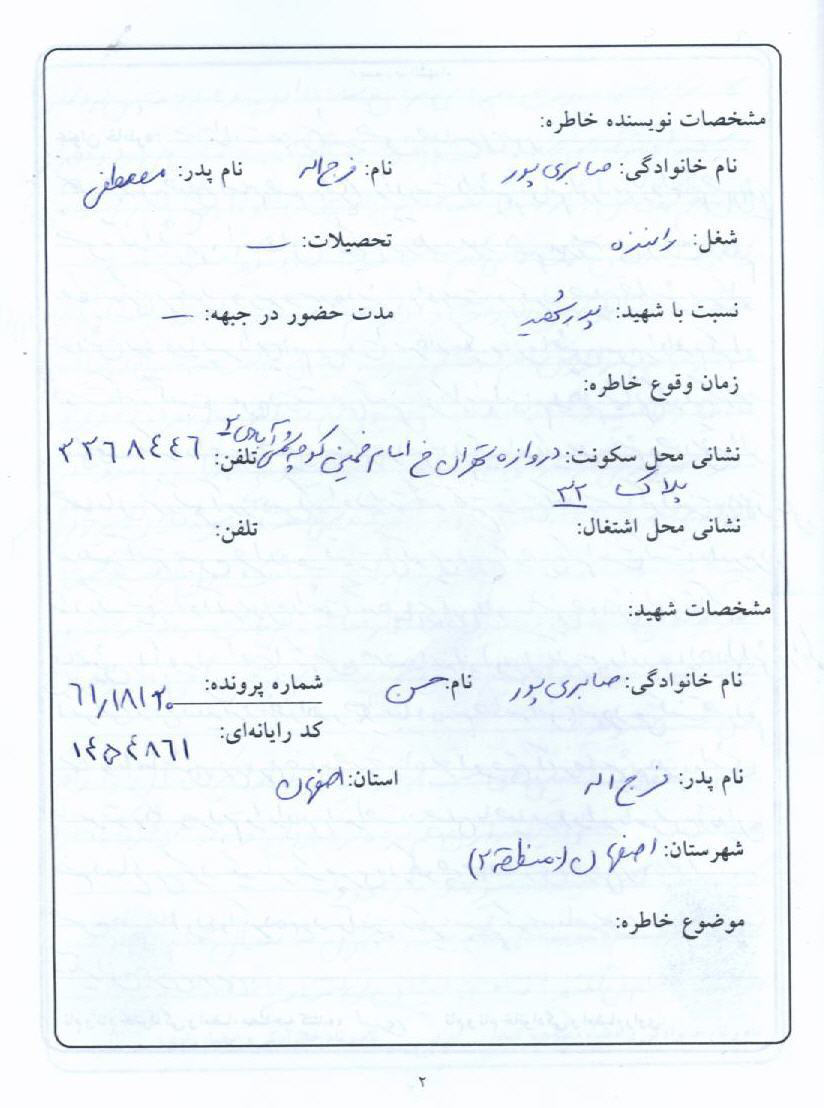 مشخصات نویسنده خاطره:
نام خانوادگی: صابری پور نام: فرج اله نام پدر: مصطفی
شغل: راننده تحصیلات: ــ
نسبت با شهید: پدر شهید مدت حضور در جبهه: ــ
زمان وقوع خاطره:
نشانی محل سکونت: دروازه تهران خ امام خمینی کوچه تلفن: ۳۳۶۸۴۴۶
پلاک ۳۳
نشانی محل اشتغال: تلفن:
مشخصات شهید:
نام خانوادگی: صابری پور نام: حسن شماره پرونده: ۶۱/۱۸۱۳۰
کد رایانه‌ای: ۱۴۵۴۸۶۱
نام پدر: فرج اله استان: اصفهان
شهرستان: اصفهان (منطقه ۲)
موضوع خاطره:
۲